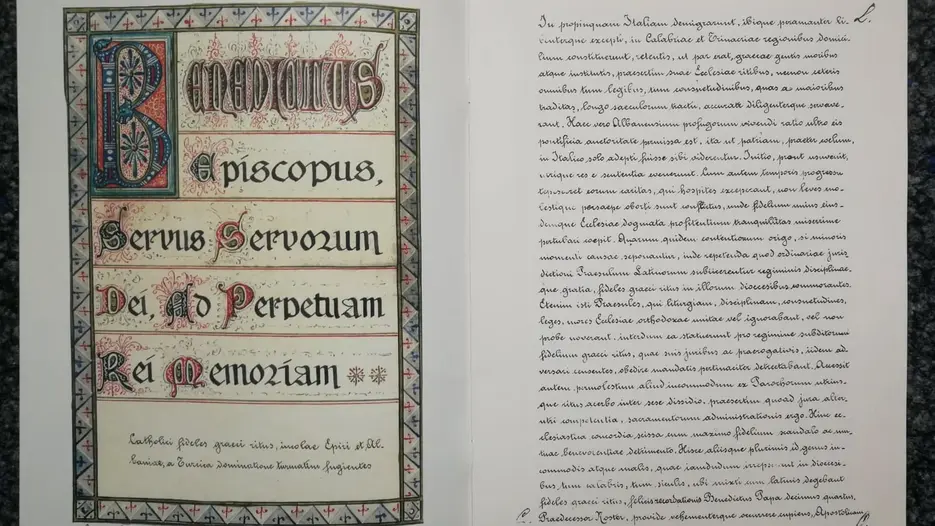 Benedictus
Episcopus,
Servus Servorum
Dei, Ad Perpetuam
Rei Memoriam
Catholici fideles graeci ritus, incolae Epiri et Al-
baniae, a Turcica dominatione turmatim fugientes
L.
In propinquam Italiam demigrarunt, ibique peramanter li-
benterque excepti, in Calabriae et Trinacriae regionibus domici-
lium constituerunt, retentis, ut par erat, graecae gentis moribus
atque institutis, praesertim suae Ecclesiae ritibus, necnon ceteris
omnibus tum legibus, tum consuetudinibus, quas a maioribus
traditas, longo saeculorum tractu, accurate diligenterque servave-
rant. Haec vero Albanensium profugorum vivendi ratio ultro eis
pontificia auctoritate permissa est, ita ut patriam, praeter coelum,
in Italico, solo adepti fuisse sibi viderentur. Initio, prout usuvenit,
utrique res e sententia evenerunt. Cum autem temporis progressu
tepesceret eorum caritas, qui hospites exceperant, non leves mo-
lestique persaepe oborti sunt conflictus, unde fidelium unius eius-
demque Ecclesiae dogmata profitentium tranquillitas miserrime
perturbari coepit. Quarum quidem contentionum origo, si minoris
momenti causae seponantur, inde repetenda quod ordinariae juris
dictioni Praesulum Latinorum subiicerentur regiminis disciplinae,
que gratia, fideles graeci ritus in illorum dioecesibus commorantes.
Etenim isti Praesules, qui liturgiam, disciplinam, consuetudines,
leges, mores Ecclesiae orthodoxae unitae vel ignorabant, vel non
probe noverant, interdum ea statuerunt pro regimine subditorum
fidelium graeci ritus, quae suis juribus ac praerogativis, iidem ad-
versari censentes, obedire mandatis pertinaciter detrectabant. Accessit
autem permolestum aliud incommodum ex Parochorum utrius-
que ritus acerbo inter sese dissidio, praesertim quoad jura alter-
utri competentia, sacramentorum administrationis ergo. Hinc ec-
clesiastica concordia scissa cum maximo fidelium scandalo ac mu-
tuae benevolentiae detrimento. Hisce aliisque plurimis id genus in-
commodis atque malis, quae iamdudum irrepserant in dioecesi-
bus, tum calabris, tum siculis, ubi mixti cum latinis degebant
fideles graeci ritus, felicis recordationis Benedictus Papa decimus quartus,
Praedecessor Noster, provide vehementerque occurrere cupiens, Apostolicam